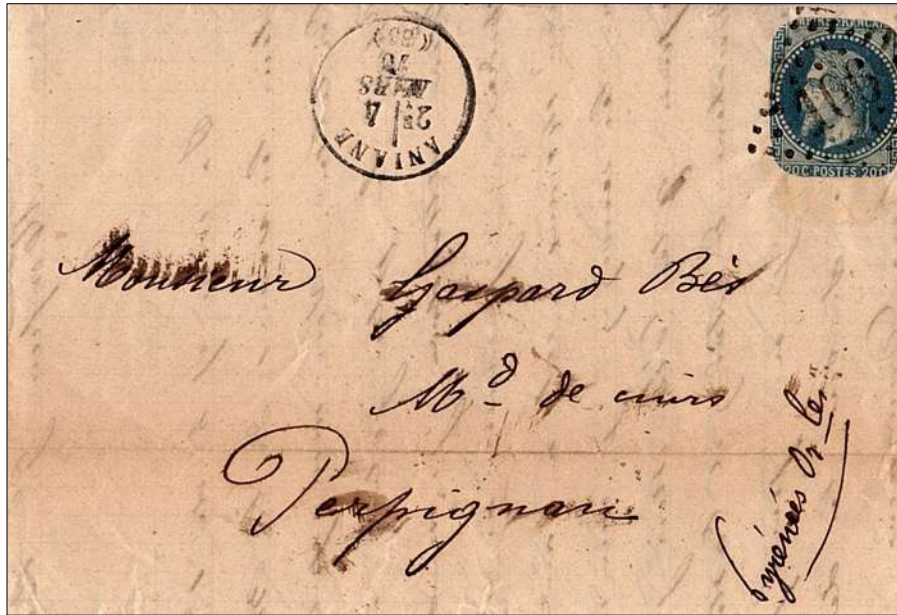 ANIANE
2E 4
MARS
70
(33)
20C POSTES 20C
Monsieur Gaspard Bès
Md de cuirs
Perpignan
Pyrénées Or les